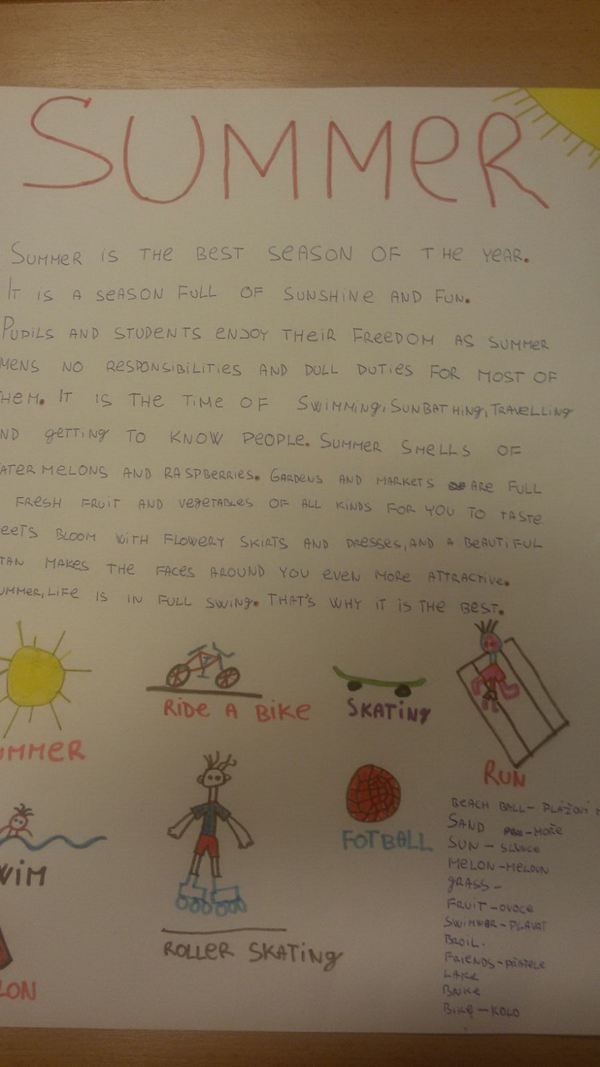 SUMMER
SUMMER IS THE BEST SEASON OF THE YEAR.
IT IS A SEASON FULL OF SUNSHINE AND FUN.
PUPILS AND STUDENTS ENJOY THEIR FREEDOM AS SUMMER
MENS NO RESPONSIBILITIES AND DULL DUTIES FOR MOST OF
HEM. IT IS THE TIME OF SWIMMING, SUNBATHING, TRAVELLING
ND GETTING TO KNOW PEOPLE. SUMMER SMELLS OF
ATERMELONS AND RASPBERRIES. GARDENS AND MARKETS ARE FULL
FRESH FRUIT AND VEGETABLES OF ALL KINDS FOR YOU TO TASTE
EETS BLOOM WITH FLOWERY SKIRTS AND DRESSES, AND A BEAUTIFUL
TAN MAKES THE FACES AROUND YOU EVEN MORE ATTRACTIVE.
UMMER, LIFE IS IN FULL SWING. THAT'S WHY IT IS THE BEST.
UMMER
RIDE A BIKE
SKATING
RUN
WIM
ROLLER SKATING
FOTBALL
LON
BEACH BALL - PLÁŽOVÍ
SAND - MOŘE
SUN - SLUNCE
MELON - MELOUN
GRASS -
FRUIT - OVOCE
SWIMWAR - PLAVAT
BROIL.
FRIENDS - PŘÁTELE
LAKE
BIKE - KOLO